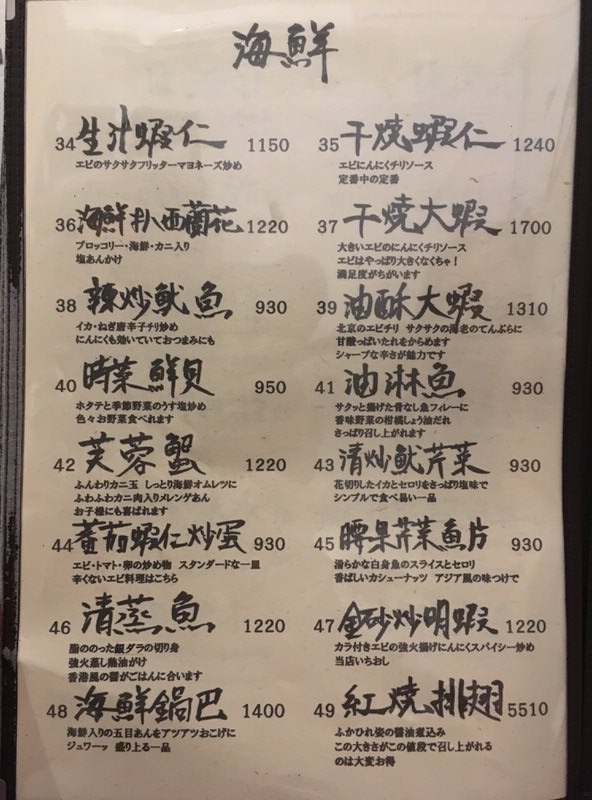 海鮮
34 生汁蝦仁 1150
エビのサクサクフリッターマヨネーズ炒め
35 干燒蝦仁 1240
エビにんにくチリソース
定番中の定番
36 海鮮扒西蘭花 1220
ブロッコリー・海鮮・カニ入り
塩あんかけ
37 干燒大蝦 1700
大きいエビのにんにくチリソース
エビはやっぱり大きくなくちゃ！
満足度がちがいます
38 辣炒魷魚 930
イカ・ねぎ唐辛子チリ炒め
にんにくも効いていておつまみにも
39 油酥大蝦 1310
北京のエビチリ サクサクの海老のてんぷらに
甘酸っぱいたれをからめます
シャープな辛さが魅力です
40 時菜鮮貝 950
ホタテと季節野菜のうす塩炒め
色々お野菜食べれます
41 油淋魚 930
サクッと揚げた骨なし魚フィレーに
香味野菜の柑橘しょう油だれ
さっぱり召し上がれます
42 芙蓉蟹 1220
ふんわりカニ玉 しっとり海鮮オムレツに
ふわふわカニ肉入りメレンゲあん
お子様にも喜ばれます
43 清炒魷芹菜 930
花切りしたイカとセロリをさっぱり塩味で
シンプルで食べ易い一品
44 蕃茄蝦仁炒蛋 930
エビ・トマト・卵の炒め物 スタンダードな一皿
辛くないエビ料理はこちら
45 腰果芹菜魚片 930
清らかな白身魚のスライスとセロリ
香ばしいカシューナッツ アジア風の味つけで
46 清蒸魚 1220
脂ののった銀ダラの切り身
強火蒸し熱油がけ
香港風の醤がごはんに合います
47 金砂炒明蝦 1220
カラ付きエビの強火揚げにんにくスパイシー炒め
当店いちおし
48 海鮮鍋巴 1400
海鮮入りの五目あんをアツアツおこげに
ジュワーッ 盛り上る一品
49 紅燒排翅 5510
ふかひれ姿の醤油煮込み
この大きさがこの値段で召し上がれる
のは大変お得